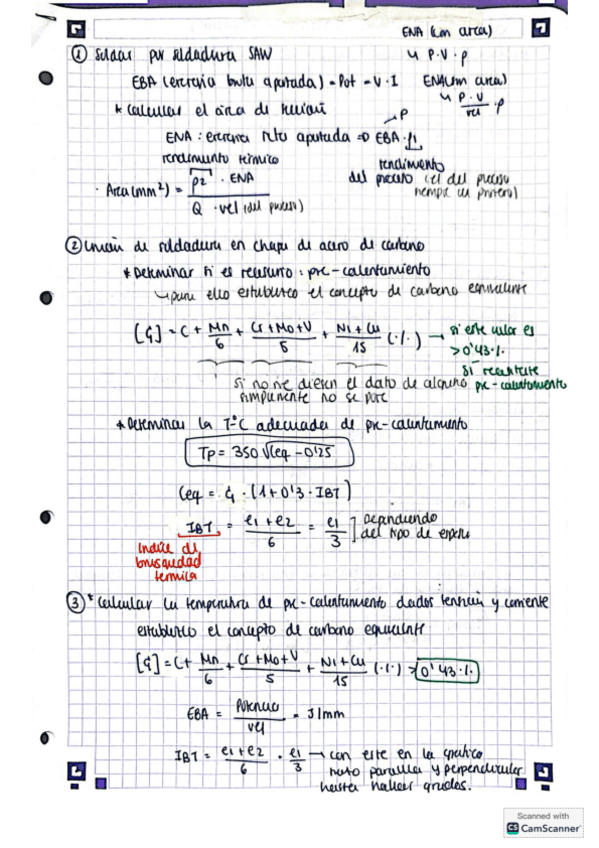 ENA (con area)
① Soldar por soldadura SAW
↳ P·V·ρ
EBA (energia bruta aportada) = Pot = V·I
ENA (con area)
↳ P·V / vel · ρ
* Calcular el area de fusión
ENA : energia neta aportada => EBA · η
rendimiento térmico
rendimiento del proceso (el del proceso siempre es primero)
· Area (mm²) = ρ2 · ENA / Q · vel (del proceso)
② Unión de soldadura en chapa de acero de carbono
* Determinar si es necesario : pre-calentamiento
↳ para ello establezco el concepto de carbono equivalente
[C1] = C + Mn/6 + Cr+Mo+V/5 + Ni+Cu/15 (·/.) → si este valor es >0'43·/. si necesite pre-calentamiento
si no me diesen el dato de alguno simplemente no se pone
* Determinar la Tª°C adecuada de pre-calentamiento
Tp = 350 √Ceq - 0'25
Ceq = C1 · (1+0'3 · IBT)
IBT = e1+e2/6 = e1/3 ] Dependiendo del tipo de espesor
Indice de brusquedad termica
③ * Calcular la temperatura de pre-calentamiento dados tensión y corriente
establezco el concepto de carbono equivalente
[C1] = C + Mn/6 + Cr+Mo+V/5 + Ni+Cu/15 (·/.) > 0'43·/.
EBA = Potencia/vel = J/mm
IBT = e1+e2/6 · e1/3 → con este en la grafica
hasta hallar grados.
Scanned with
CS CamScanner